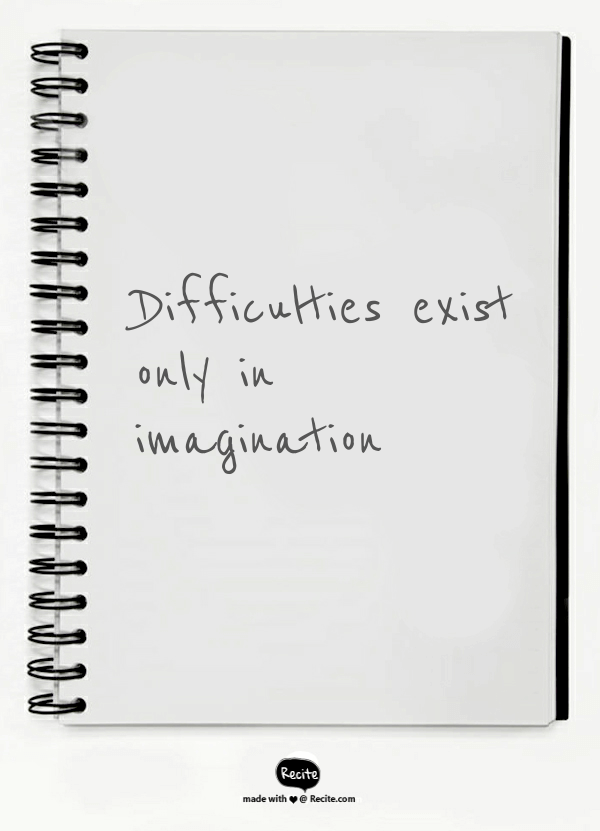 Difficulties exist
only in
imagination
Recite
made with ♥ @ Recite.com